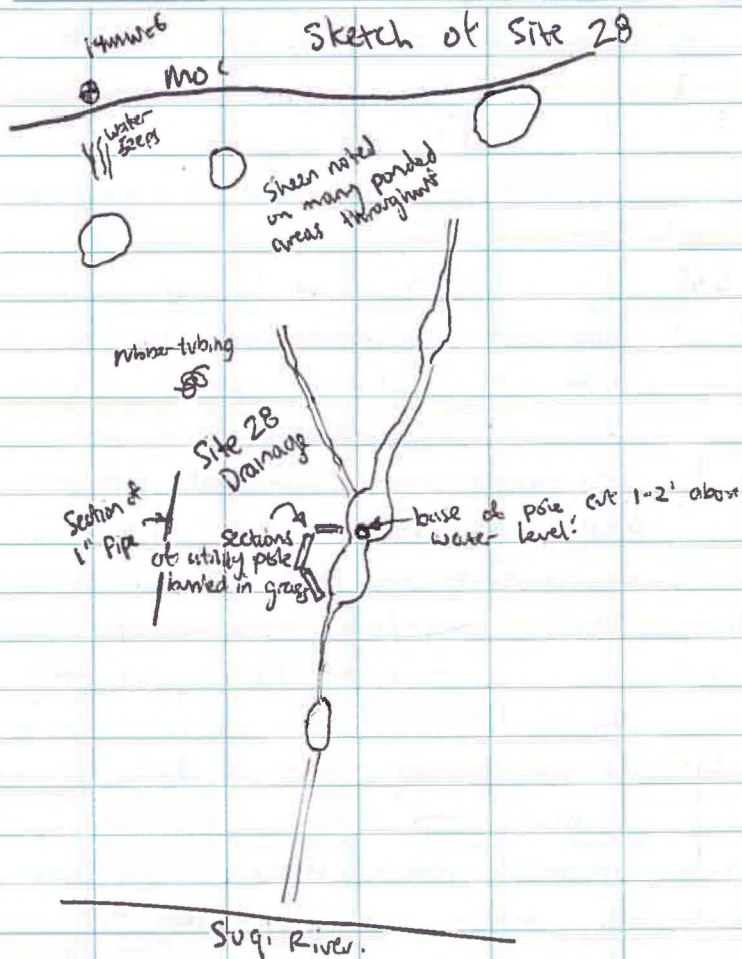 Sketch of Site 28
14MW-6
MOC
water
seeps
Sheen noted
on many ponded
areas throughout
rubber tubing
Site 28
Drainage
Section of
1" Pipe
sections
of utility pole
buried in grass
base of pole cut 1-2' above
water level.
Suqi River.